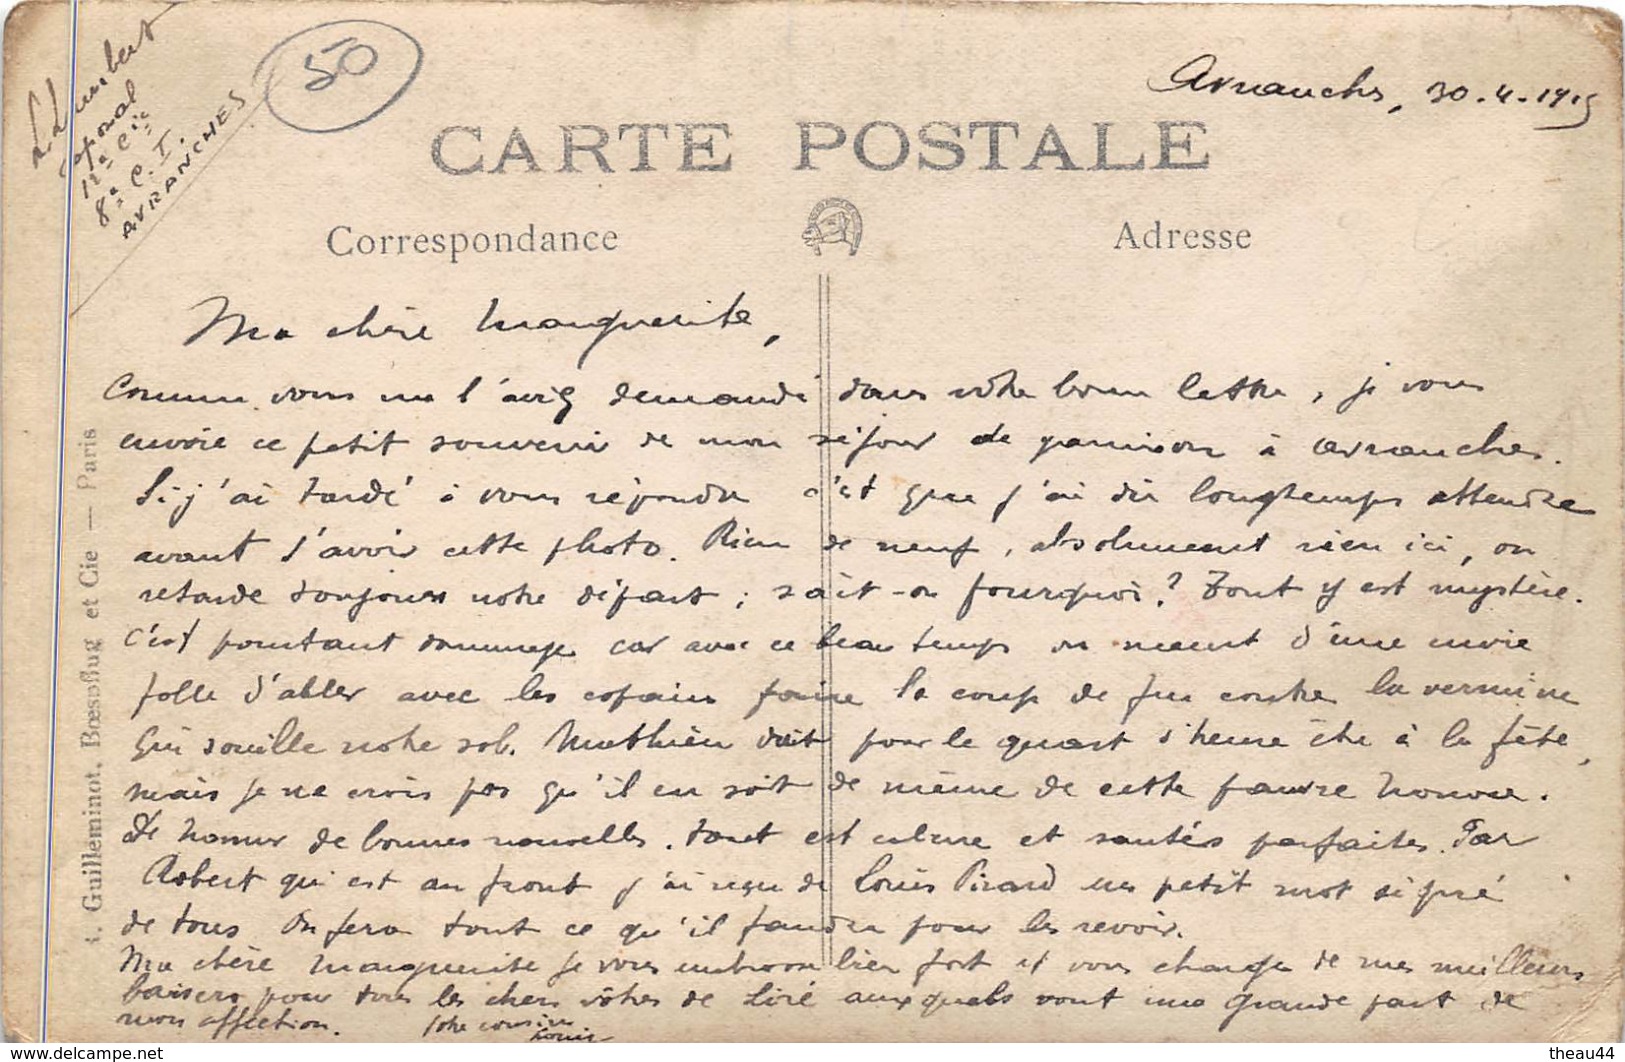 L Lambert
Caporal
12e Cie
8e C. I.
AVRANCHES
50
Avranches, 30-4-1915
CARTE POSTALE
Correspondance
Adresse
A. Guilleminot, Bœspflug et Cie — Paris
Ma chère Marguerite,
Comme vous me l'avez demandé dans votre bonne lettre, je vous
envoie ce petit souvenir de mon séjour de garnison à Avranches.
Si j'ai tardé à vous répondre c'est que j'ai dû longtemps attendre
avant d'avoir cette photo. Rien de neuf, absolument rien ici, on
retarde toujours notre départ ; sait-on pourquoi ? Tout y est mystère.
C'est pourtant dommage car avec ce beau temps on meurt d'une envie
folle d'aller avec les copains faire le coup de feu contre la vermine
qui souille notre sol. Mathieu doit pour le quart d'heure être à la fête,
mais je ne crois pas qu'il en soit de même de cette pauvre Nonore.
De Namur de bonnes nouvelles. tout est calme et santés parfaites. Par
Robert qui est au front j'ai reçu de Louis Pirard un petit mot signé
de tous. On fera tout ce qu'il faudra pour les revoir.
Ma chère Marguerite je vous embrasse bien fort et vous charge de mes meilleurs
baisers pour tous les chers vôtres de Liré auxquels vont une grande part de
mon affection. Votre cousin
Louis
www.delcampe.net
theau44